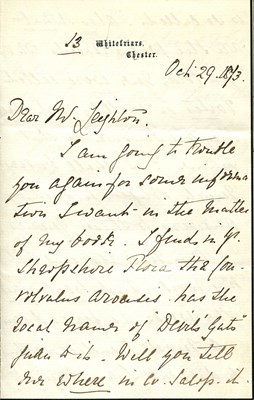 13 Whitefriars.
Chester.
Oct 29. 1873.
Dear Mr. Leighton.
I am going to trouble
you again for some informa
tion I want in the matter
of my book. I find in yr.
Shropshire Flora that Con
volvulus arvensis has the
local names of "Devil's Guts"
given to it. Will you tell
me where in Co. Salop. it